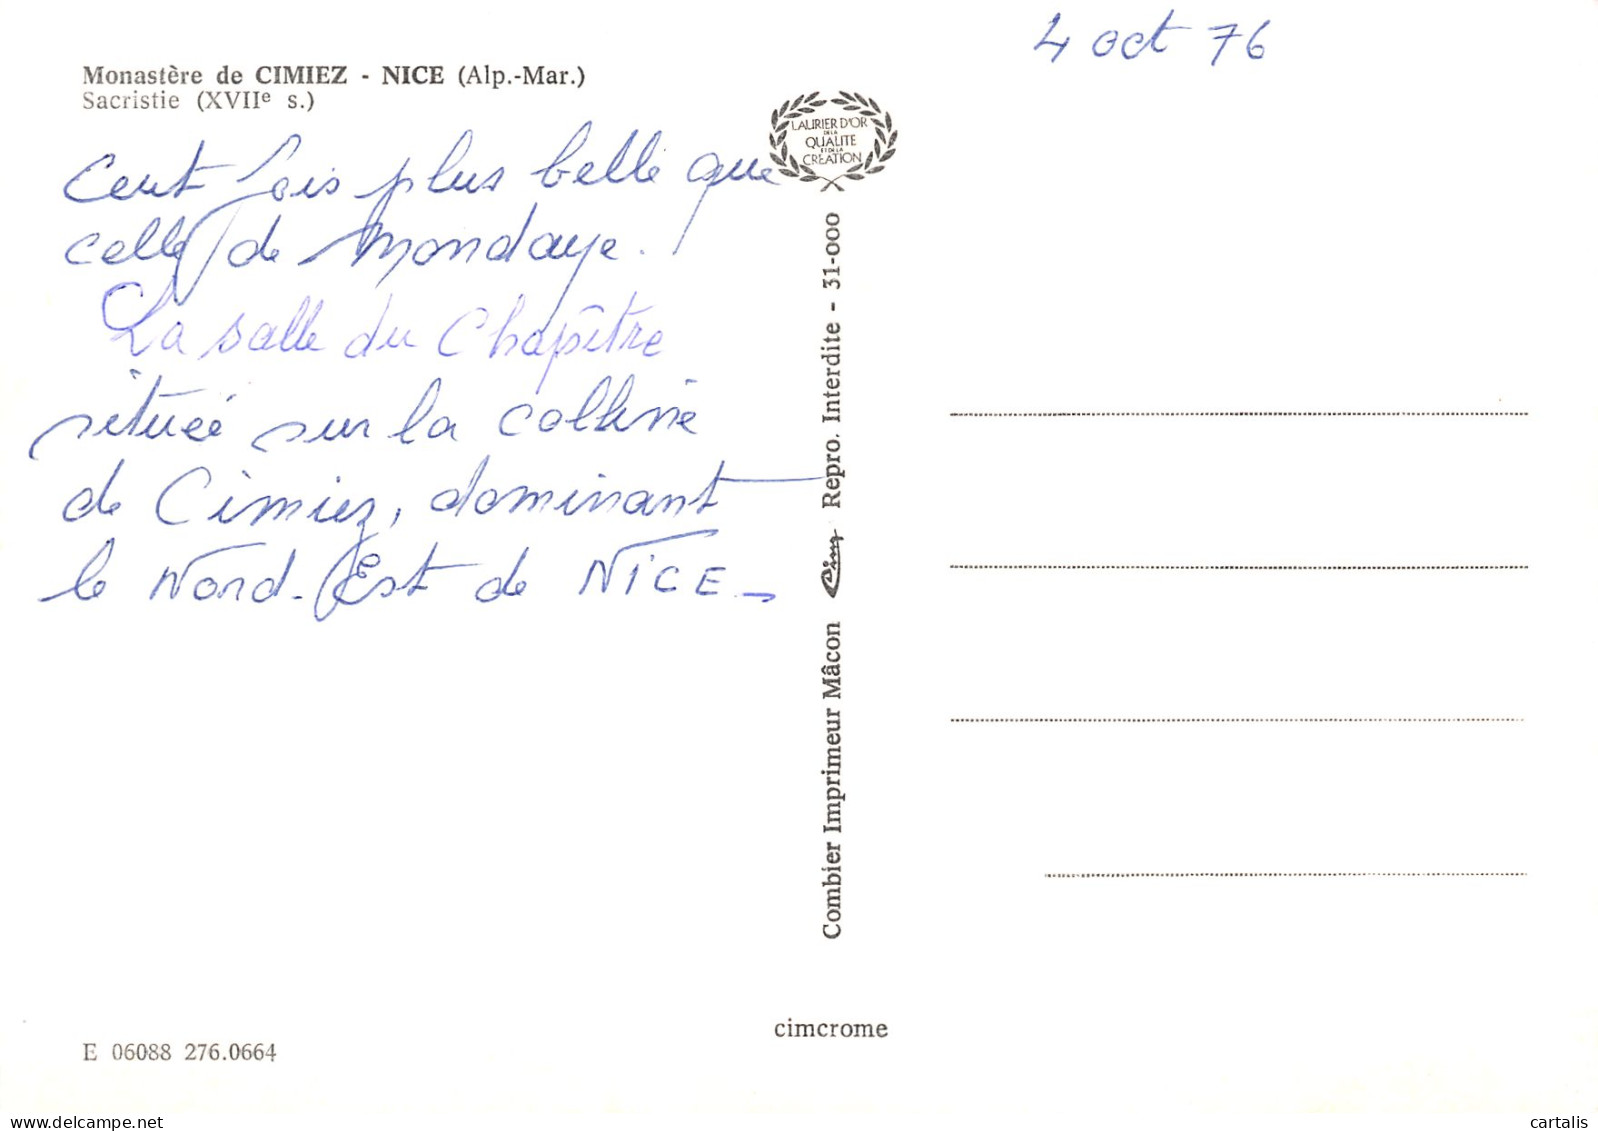 4 oct 76
Monastère de CIMIEZ - NICE (Alp.-Mar.)
Sacristie (XVIIe s.)
Cent fois plus belle que
celle de Mondaye.
La salle du Chapître
située sur la colline
de Cimiez, dominant
le Nord-Est de NICE_
LAURIER D'OR
DE LA
QUALITE
ET DE LA
CREATION
Combier Imprimeur Mâcon Cim Repro. Interdite - 31-000
cimcrome
E 06088 276.0664
cartalis